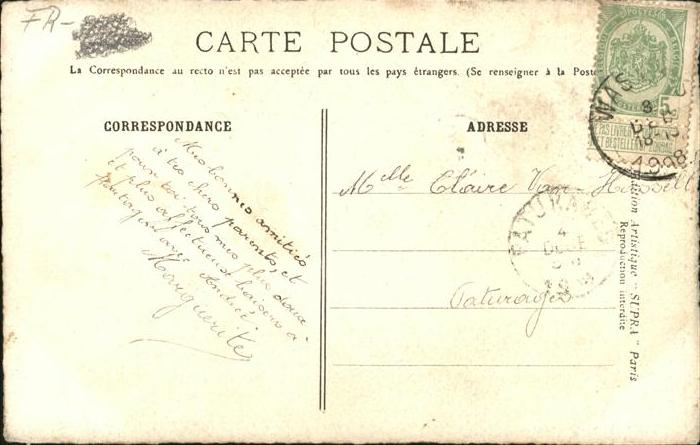 FR-
CARTE POSTALE
La Correspondance au recto n'est pas acceptée par tous les pays étrangers. (Se renseigner à la Poste
CORRESPONDANCE
ADRESSE
Mes bonnes amitiés
à tes chers parents, et
pour toi tous mes plus doux
et plus affectueux baisers à
partager avec Andrée
Marguerite
Melle Claire Van
Pâturages
5
NE PAS LIVRER LE DIMANCHE
1908
PATURAGES
4
Artistique "SUPRA" Paris
Reproduction interdite